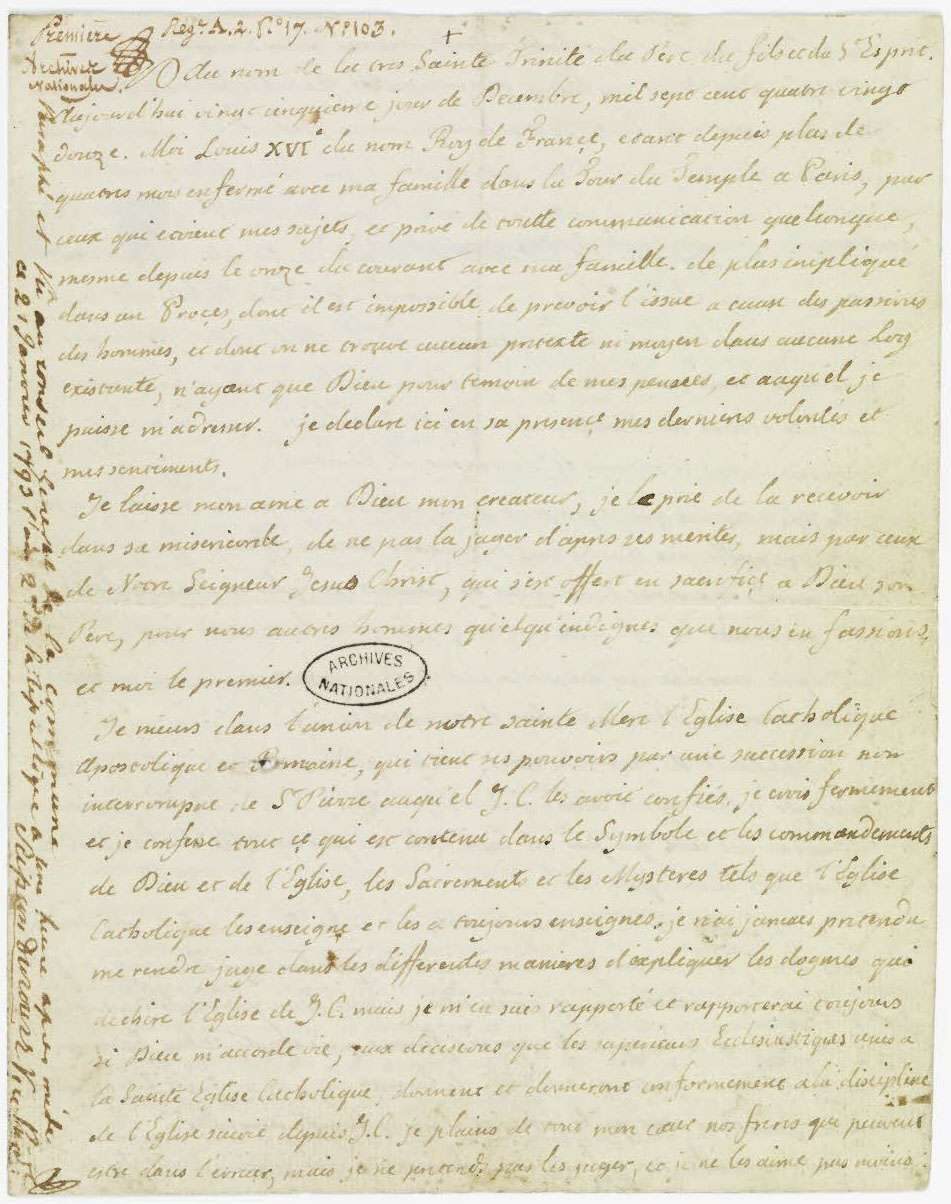 Première
Archives
Nationales.
Regre. A. 2. Po 17. No 103.
+
Au nom de la tres Sainte Trinité du Pere du fils et du St Esprit.
Aujourd'hui vingt cinquieme jour de Decembre, mil sept cent quatre vingt
douze. Moi Louis XVIe du nom Roy de France, etant depuis plus de
quatres mois enfermé avec ma famille dans la Tour du Temple a Paris, par
ceux qui etoient mes sujets, et privé de toutte communication quelconque,
mesme depuis le onze du courant avec ma famille. de plus impliqué
dans un Procès, dont il est impossible de prevoir l'issue a cause des passions
des hommes, et dont on ne trouve aucun pretexte ni moyen dans aucune Loy
existante, n'ayant que Dieu pour temoin de mes pensées, et auquel je
puisse m'adresser. je declare ici en sa presence mes dernieres volontés et
mes sentiments.
Je laisse mon ame a Dieu mon createur, je le prie de la recevoir
dans sa misericorde, de ne pas la juger d'apres ses merites, mais par ceux
de Notre Seigneur Jesus Christ, qui s'est offert en sacrifice a Dieu son
Pere, pour nous autres hommes quelqu'indignes que nous en fussions,
et moi le premier.
ARCHIVES
NATIONALES
Je meurs dans l'union de notre sainte Mere l'Eglise Catholique
Apostolique et Romaine, qui tient ses pouvoirs par une succession non
interrompue de St Pierre auquel J. C. les avoit confiés, je crois fermement
et je confesse tout ce qui est contenu dans le Symbole et les commandements
de Dieu et de l'Eglise, les Sacrements et les Mysteres tels que l'Eglise
Catholique les enseigne et les a toujours enseignés. je n'ai jamais pretendu
me rendre juge dans les differentes manieres d'expliquer les dogmes qui
dechire l'Eglise de J. C. mais je m'en suis rapporté et rapporterai toujours
si Dieu m'accorde vie, aux decisions que les superieurs Ecclesiastiques unis a
la Sainte Eglise Catholique, donnent et donneront conformement a la discipline
de l'Eglise suivie depuis J. C. je plains de tout mon cœur nos freres qui peuvent
estre dans l'erreur, mais je ne pretends pas les juger, et je ne les aime pas moins
Paraphé et Vu au conseil General de la Commune
ce 21 Janvier 1793 l'an 2d de la Republique